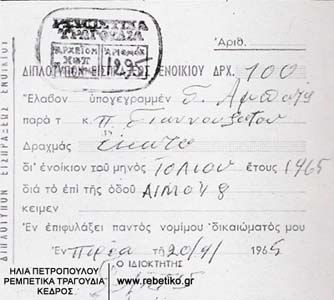 ΡΕΜΠΕΤΙΚΑ
ΤΡΑΓΟΥΔΙΑ
ΑΡΧΕΙΟΝ ΑΡΙΘΜΟΣ
1295
Ἀριθ.
ΔΙΠΛΟΤΥΠΟΝ ΕΙΣΠΡΑΞΕΩΣ ΕΝΟΙΚΙΟΥ ΔΡΧ. 100
Ἔλαβον ὑπογεγραμμέν
παρὰ τ κ. Π.
Δραχμὰς ἑκατό
δι' ἐνοίκιον τοῦ μηνὸς ΙΟΛΙΟΥ ἔτους 1965
διὰ τὸ ἐπὶ τῆς ὁδοῦ ΑΙΜΟΥ 8
κειμεν
Ἐν ἐπιφυλάξει παντὸς νομίμου δικαιώματός μου
Ἐν τῇ 20/9/ 1965
Ο ΙΔΙΟΚΤΗΤΗΣ
ΔΙΠΛΟΤΥΠΟΝ ΕΙΣΠΡΑΞΕΩΣ ΕΝΟΙΚΙΟΥ
ΗΛΙΑ ΠΕΤΡΟΠΟΥΛΟΥ
ΡΕΜΠΕΤΙΚΑ ΤΡΑΓΟΥΔΙΑ
ΚΕΔΡΟΣ
www.rebetiko.gr